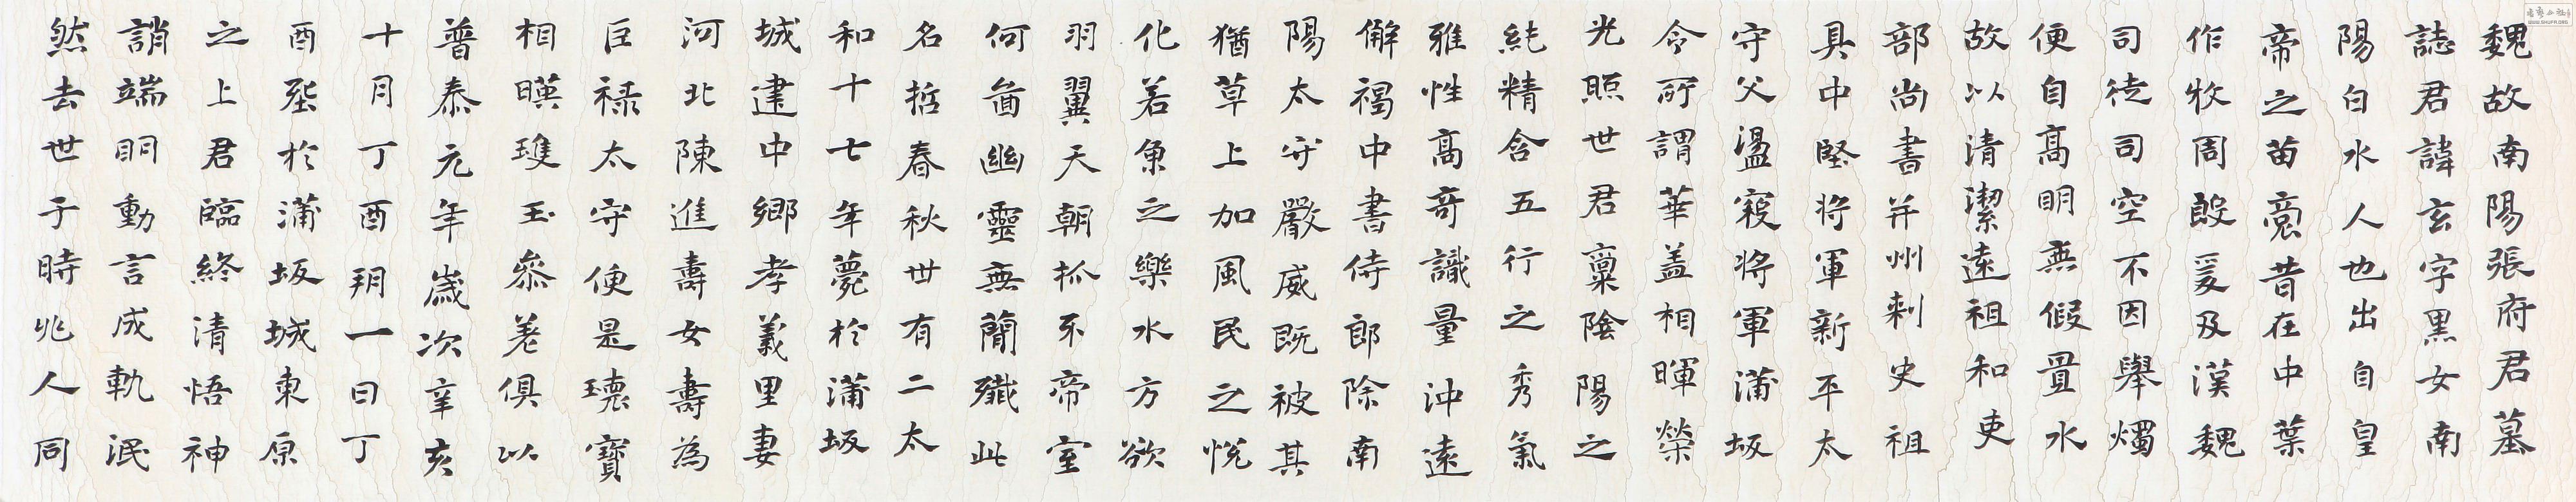 魏故南陽張府君墓
誌君諱玄字黑女南
陽白水人也出自皇
帝之苗裔昔在中葉
作牧周殷爰及漢魏
司徒司空不因舉燭
便自高明無假置水
故以清潔遠祖和吏
部尚書并州刺史祖
具中堅將軍新平太
守父盪寇將軍蒲坂
令所謂華蓋相暉榮
光照世君稟陰陽之
純精含五行之秀氣
雅性高奇識量沖遠
解褐中書侍郎除南
陽太守嚴威既被其
猶草上加風民之悅
化若魚之樂水方欲
羽翼天朝抓牙帝室
何啚幽靈無簡殲此
名哲春秋世有二太
和十七年薨於蒲坂
城建中鄉孝義里妻
河北陳進壽女壽為
巨祿太守便是瓌寶
相暎瓊玉參差俱以
普泰元年歲次辛亥
十月丁酉朔一日丁
酉塟於蒲坂城東原
之上君臨終清悟神
誚端明動言成軌泯
然去世于時兆人同